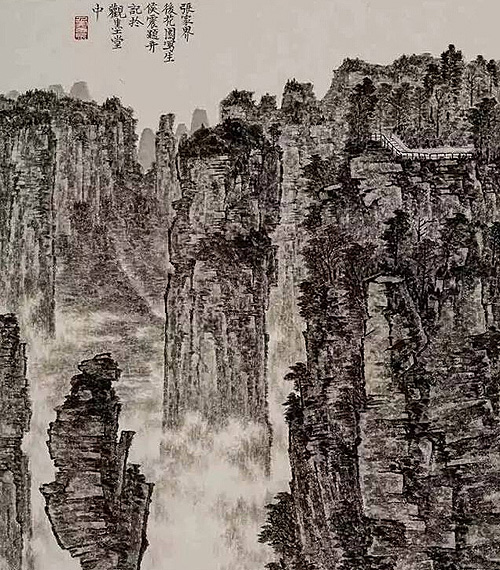 張家界
後花園寫生
侯震題并
記於
觀 堂
中